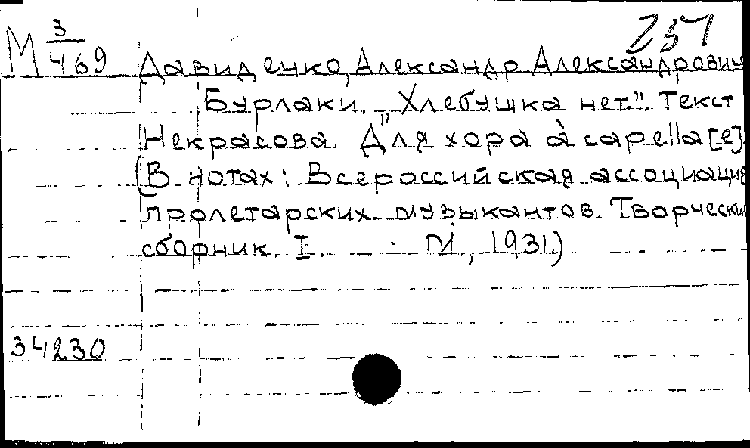 М 3/469
237
Давиденко, Александр Александрович
Бурлаки. „Хлебушка нет". Текст
Некрасова. Для хора à capella[е].
(В нотах: Всероссийская ассоциация
пролетарских музыкантов. Творческий
сборник. I. М., 1931.)
34230